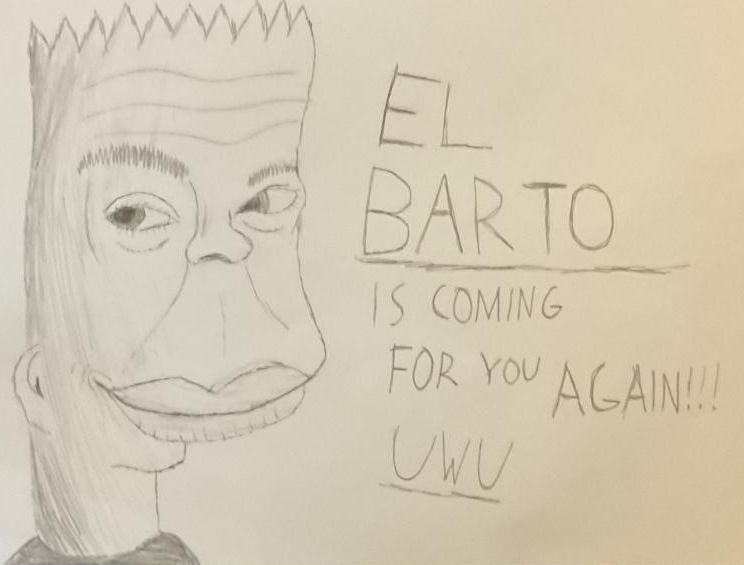 EL
BARTO
IS COMING
FOR YOU AGAIN!!!
UWU